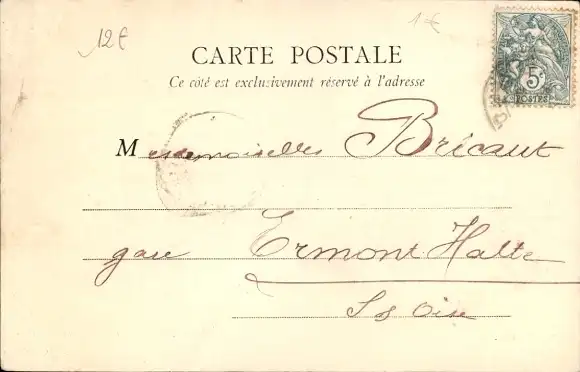 12€
1€
CARTE POSTALE
Ce côté est exclusivement réservé à l'adresse
5c
POSTES
Mesdemoiselles Bricaut
gare Ermont Halte
S & Oise